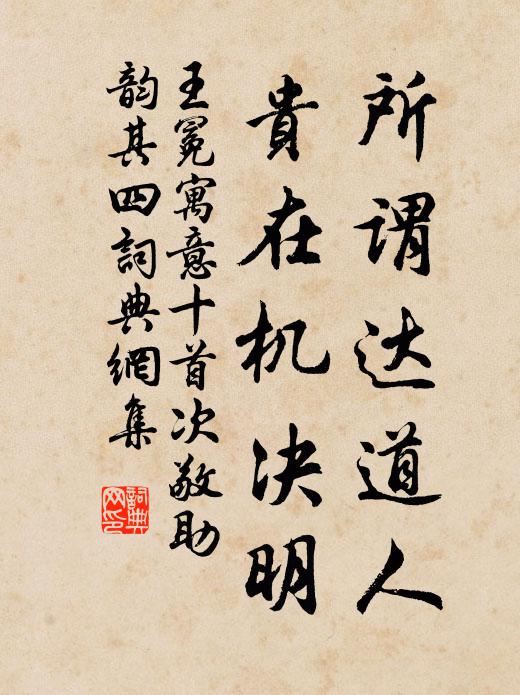 所谓达道人
貴在机决明
王冕寓意十首次敬助
韵其四詞典網集
詞典网印